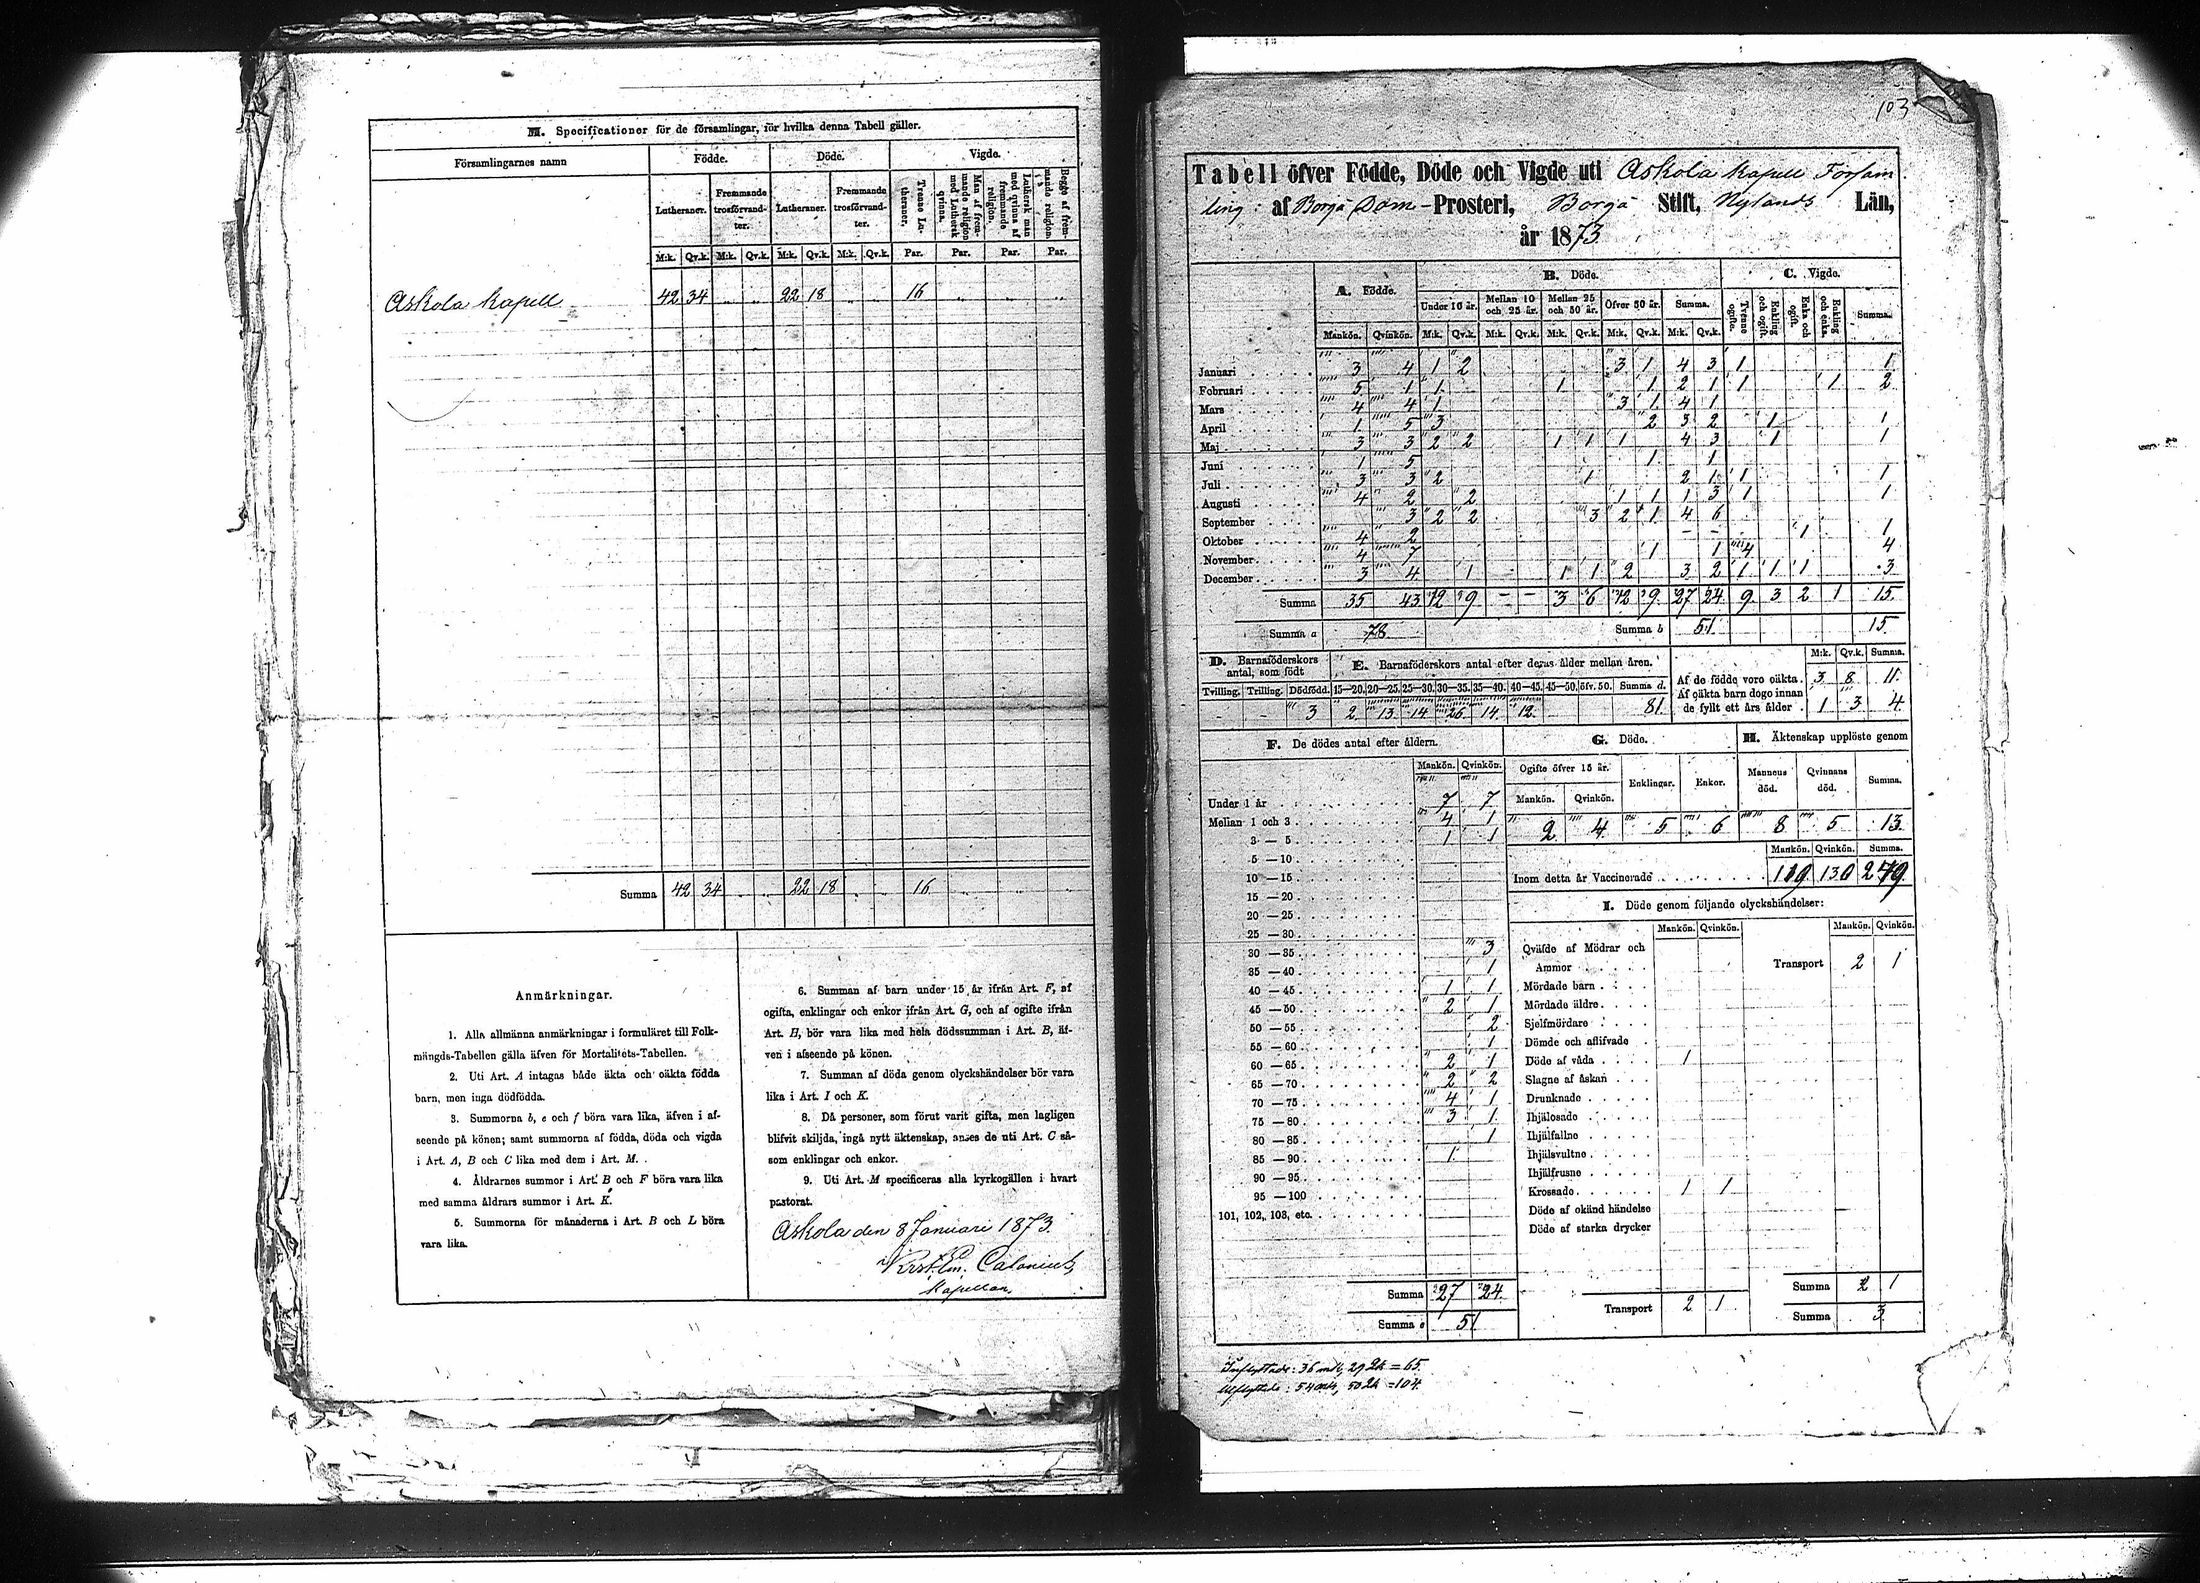 M. Specificationer för de församlingar, för hvilka denna Tabell gäller.
Församlingarnes namn
Födde. Döde. Vigde.
Lutheraner. Fremmande trosförvandter. Lutheraner. Fremmande trosförvandter.
Tvenne Lutheraner.
Man af fremmande religion med Luthersk qvinna.
Luthersk man med qvinna af fremmande religion.
Begge af fremmande religion.
M:k. Qv.k. M:k. Qv.k. M:k. Qv.k. M:k. Qv.k. Par. Par. Par. Par.
Askola kapell 42 34 „ „ 22 18 „ „ 16 „ „ „
Summa 42 34 „ „ 22 18 „ „ 16 „ „ „
Anmärkningar.
1. Alla allmänna anmärkningar i formuläret till Folk-
mängds-Tabellen gälla äfven för Mortalitets-Tabellen.
2. Uti Art. A intagas både äkta och oäkta födda
barn, men inga dödfödda.
3. Summorna b, e och f böra vara lika, äfven i af-
seende på könen; samt summorna af födda, döda och vigda
i Art. A, B och C lika med dem i Art. M.
4. Åldrarnes summor i Art. B och F böra vara lika
med samma åldrars summor i Art. K.
5. Summorna för månaderna i Art. B och L böra
vara lika.
6. Summan af barn under 15 år ifrån Art. F, af
ogifta, enklingar och enkor ifrån Art. G, och af ogifte ifrån
Art. H, bör vara lika med hela dödssumman i Art. B, äf-
ven i afseende på könen.
7. Summan af döda genom olyckshändelser bör vara
lika i Art. I och K.
8. Då personer, som förut varit gifta, men lagligen
blifvit skiljda, ingå nytt äktenskap, anses de uti Art. C så-
som enklingar och enkor.
9. Uti Art. M specificeras alla kyrkogällen i hvart
pastorat.
Askola den 8 Januari 1873.
Calonius,
Kapellan.
103
Tabell öfver Födde, Döde och Vigde uti Askola kapell Försam
ling: af Borgå Dom-Prosteri, Borgå Stift, Nylands Län,
år 1873.
A. Födde. B. Döde. C. Vigde.
Under 10 år. Mellan 10 och 25 år. Mellan 25 och 50 år. Öfver 50 år. Summa.
Tvenne ogifte. Enkling och ogift. Enka och ogift. Enkling och enka. Summa.
Mankön. Qvinkön. M:k. Qv.k. M:k. Qv.k. M:k. Qv.k. M:k. Qv.k. M:k. Qv.k.
Januari 3 4 1 2 3 1 4 3 1 1
Februari 5 1 1 1 1 2 1 1 1 2
Mars 4 4 1 3 1 4 1
April 1 5 3 2 3 2 1 1
Maj 3 3 2 2 1 1 1 4 3 1 1
Juni 1 5 1 1
Juli 3 3 2 1 2 1 1 1
Augusti 4 2 2 1 1 1 3 1 1
September 3 2 2 3 2 1 4 6
Oktober 4 2 – – 1 1
November 4 7 1 1 4 4
December 3 4 1 1 1 2 3 2 1 1 1 3
Summa 35 43 12 9 – – 3 6 12 9 27 24 9 3 2 1 15
Summa a 78 Summa b 51 15
D. Barnaföderskors antal, som födt
E. Barnaföderskors antal efter deras ålder mellan åren.
Tvilling. Trilling. Dödfödd. 15—20. 20—25. 25—30. 30—35. 35—40. 40—45. 45—50. öfv. 50. Summa d.
– – 3 2 13 14 26 14 12 81
M:k. Qv.k. Summa.
Af de födde voro oäkta. 3 8 11
Af oäkta barn dogo innan
de fyllt ett års ålder 1 3 4
F. De dödes antal efter åldern.
Mankön. Qvinkön.
Under 1 år 7 7
Mellan 1 och 3 4 1
3 — 5 1 1
5 — 10
10 — 15
15 — 20
20 — 25
25 — 30
30 — 35 3
35 — 40 1
40 — 45 1 1
45 — 50 2 1
50 — 55 2
55 — 60 1
60 — 65 2 1
65 — 70 2 2
70 — 75 4 1
75 — 80 3 1
80 — 85 1
85 — 90 1
90 — 95
95 — 100
101, 102, 103, etc.
Summa 27 24
Summa e 51
G. Döde. H. Äktenskap upplöste genom
Ogifte öfver 15 år. Enklingar. Enkor. Mannens död. Qvinnans död. Summa.
Mankön. Qvinkön.
2 4 5 6 8 5 13
Mankön. Qvinkön. Summa.
Inom detta år Vaccinerade 130
I. Döde genom följande olyckshändelser:
Mankön. Qvinkön. Mankön. Qvinkön.
Qväfde af Mödrar och
Ammor
Transport 2 1
Mördade barn
Mördade äldre
Sjelfmördare
Dömde och aflifvade
Döde af våda 1
Slagne af åskan
Drunknade
Ihjälosade
Ihjälfallne
Ihjälsvultne
Ihjälfrusne
Krossade 1 1
Döde af okänd händelse
Döde af starka drycker
Transport 2 1
Summa 2 1
Summa 3
Inflyttade: 36 mk, 29 Qk = 65.
Utflyttade: 54 mk, 50 Qk = 104.